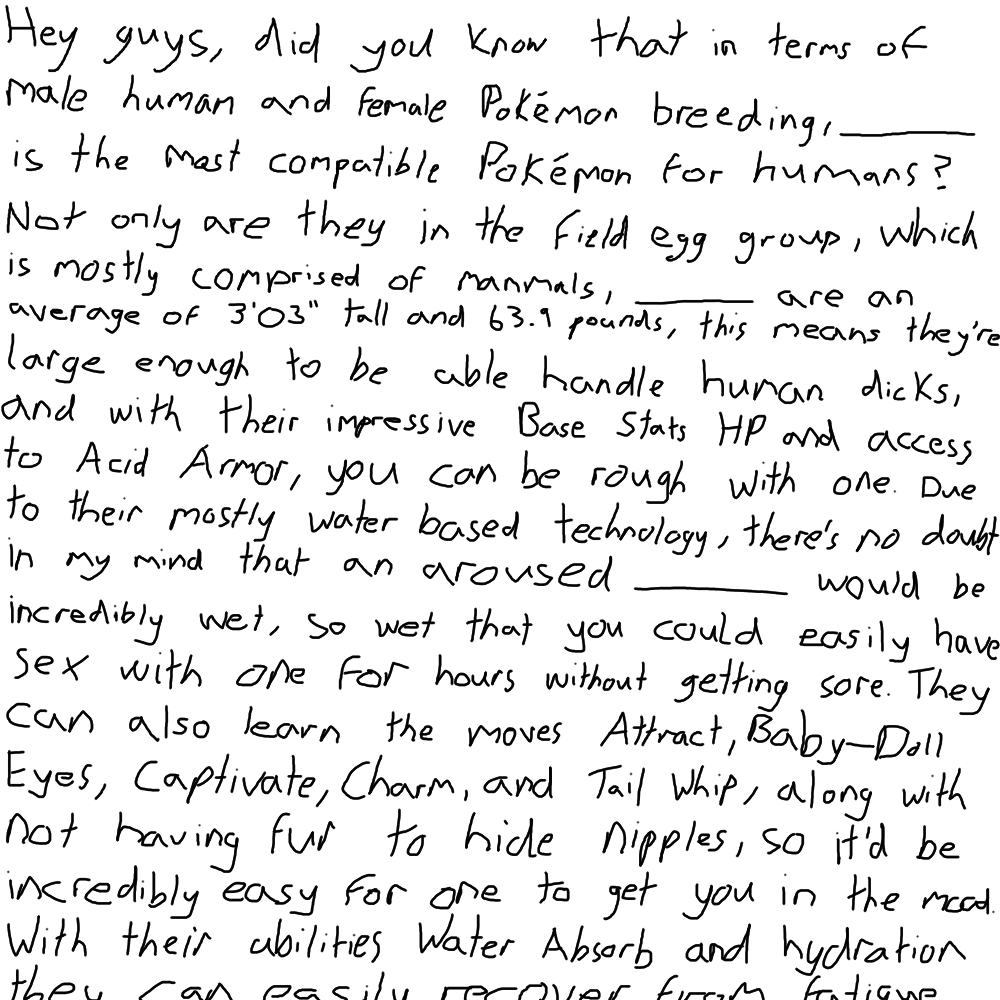 Hey guys, did you know that in terms of
male human and female Pokémon breeding, ______
is the most compatible Pokémon for humans?
Not only are they in the field egg group, which
is mostly comprised of mammals, ______ are an
average of 3'03" tall and 63.9 pounds, this means they're
large enough to be able handle human dicks,
and with their impressive Base Stats HP and access
to Acid Armor, you can be rough with one. Due
to their mostly water based technology, there's no doubt
in my mind that an aroused ______ would be
incredibly wet, so wet that you could easily have
sex with one for hours without getting sore. They
can also learn the moves Attract, Baby-Doll
Eyes, Captivate, Charm, and Tail Whip, along with
not having fur to hide nipples, so it'd be
incredibly easy for one to get you in the mood.
With their abilities Water Absorb and hydration
they can easily recover from fatigue